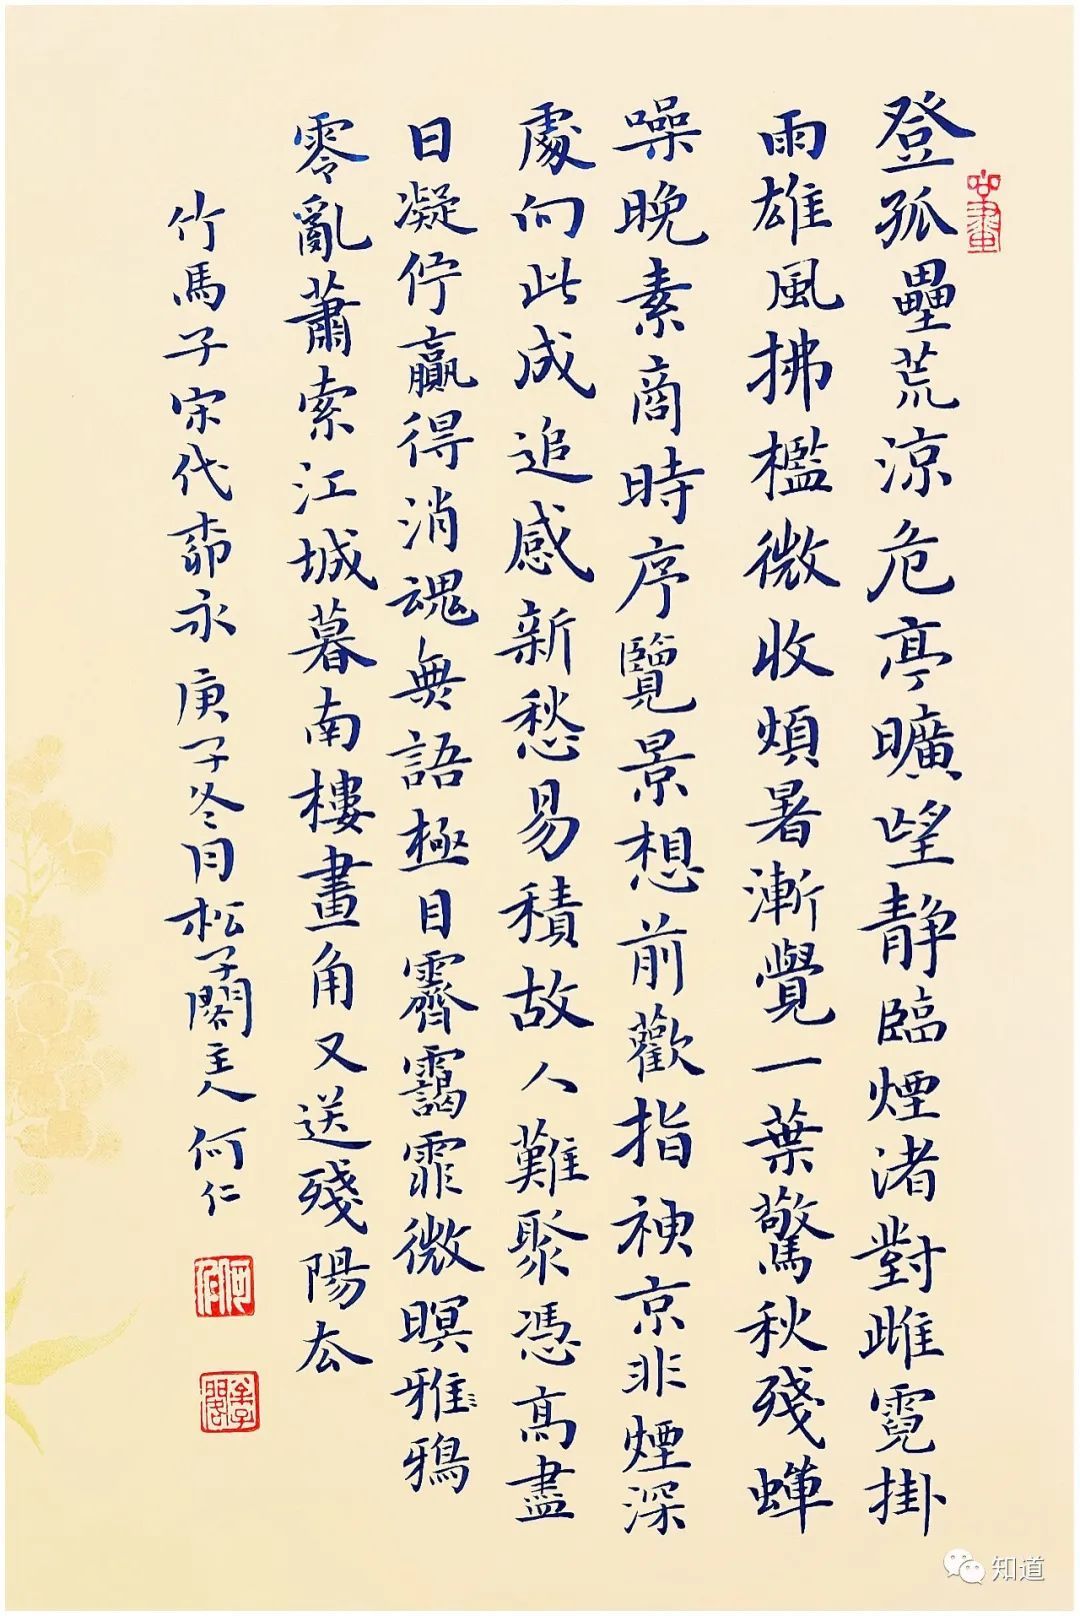 登孤壘荒涼危亭曠望静臨煙渚對雌霓掛
雨雄風拂檻微收煩暑漸覺一葉驚秋殘蟬
噪晚素商時序覽景想前歡指神京非煙深
處向此成追感新愁易積故人難聚憑高盡
日凝佇贏得消魂無語極目霽靄霏微暝雅鴉
零亂蕭索江城暮南樓畫角又送殘陽去
竹馬子宋代柳永庚子冬月松子閣主人何仁
知道